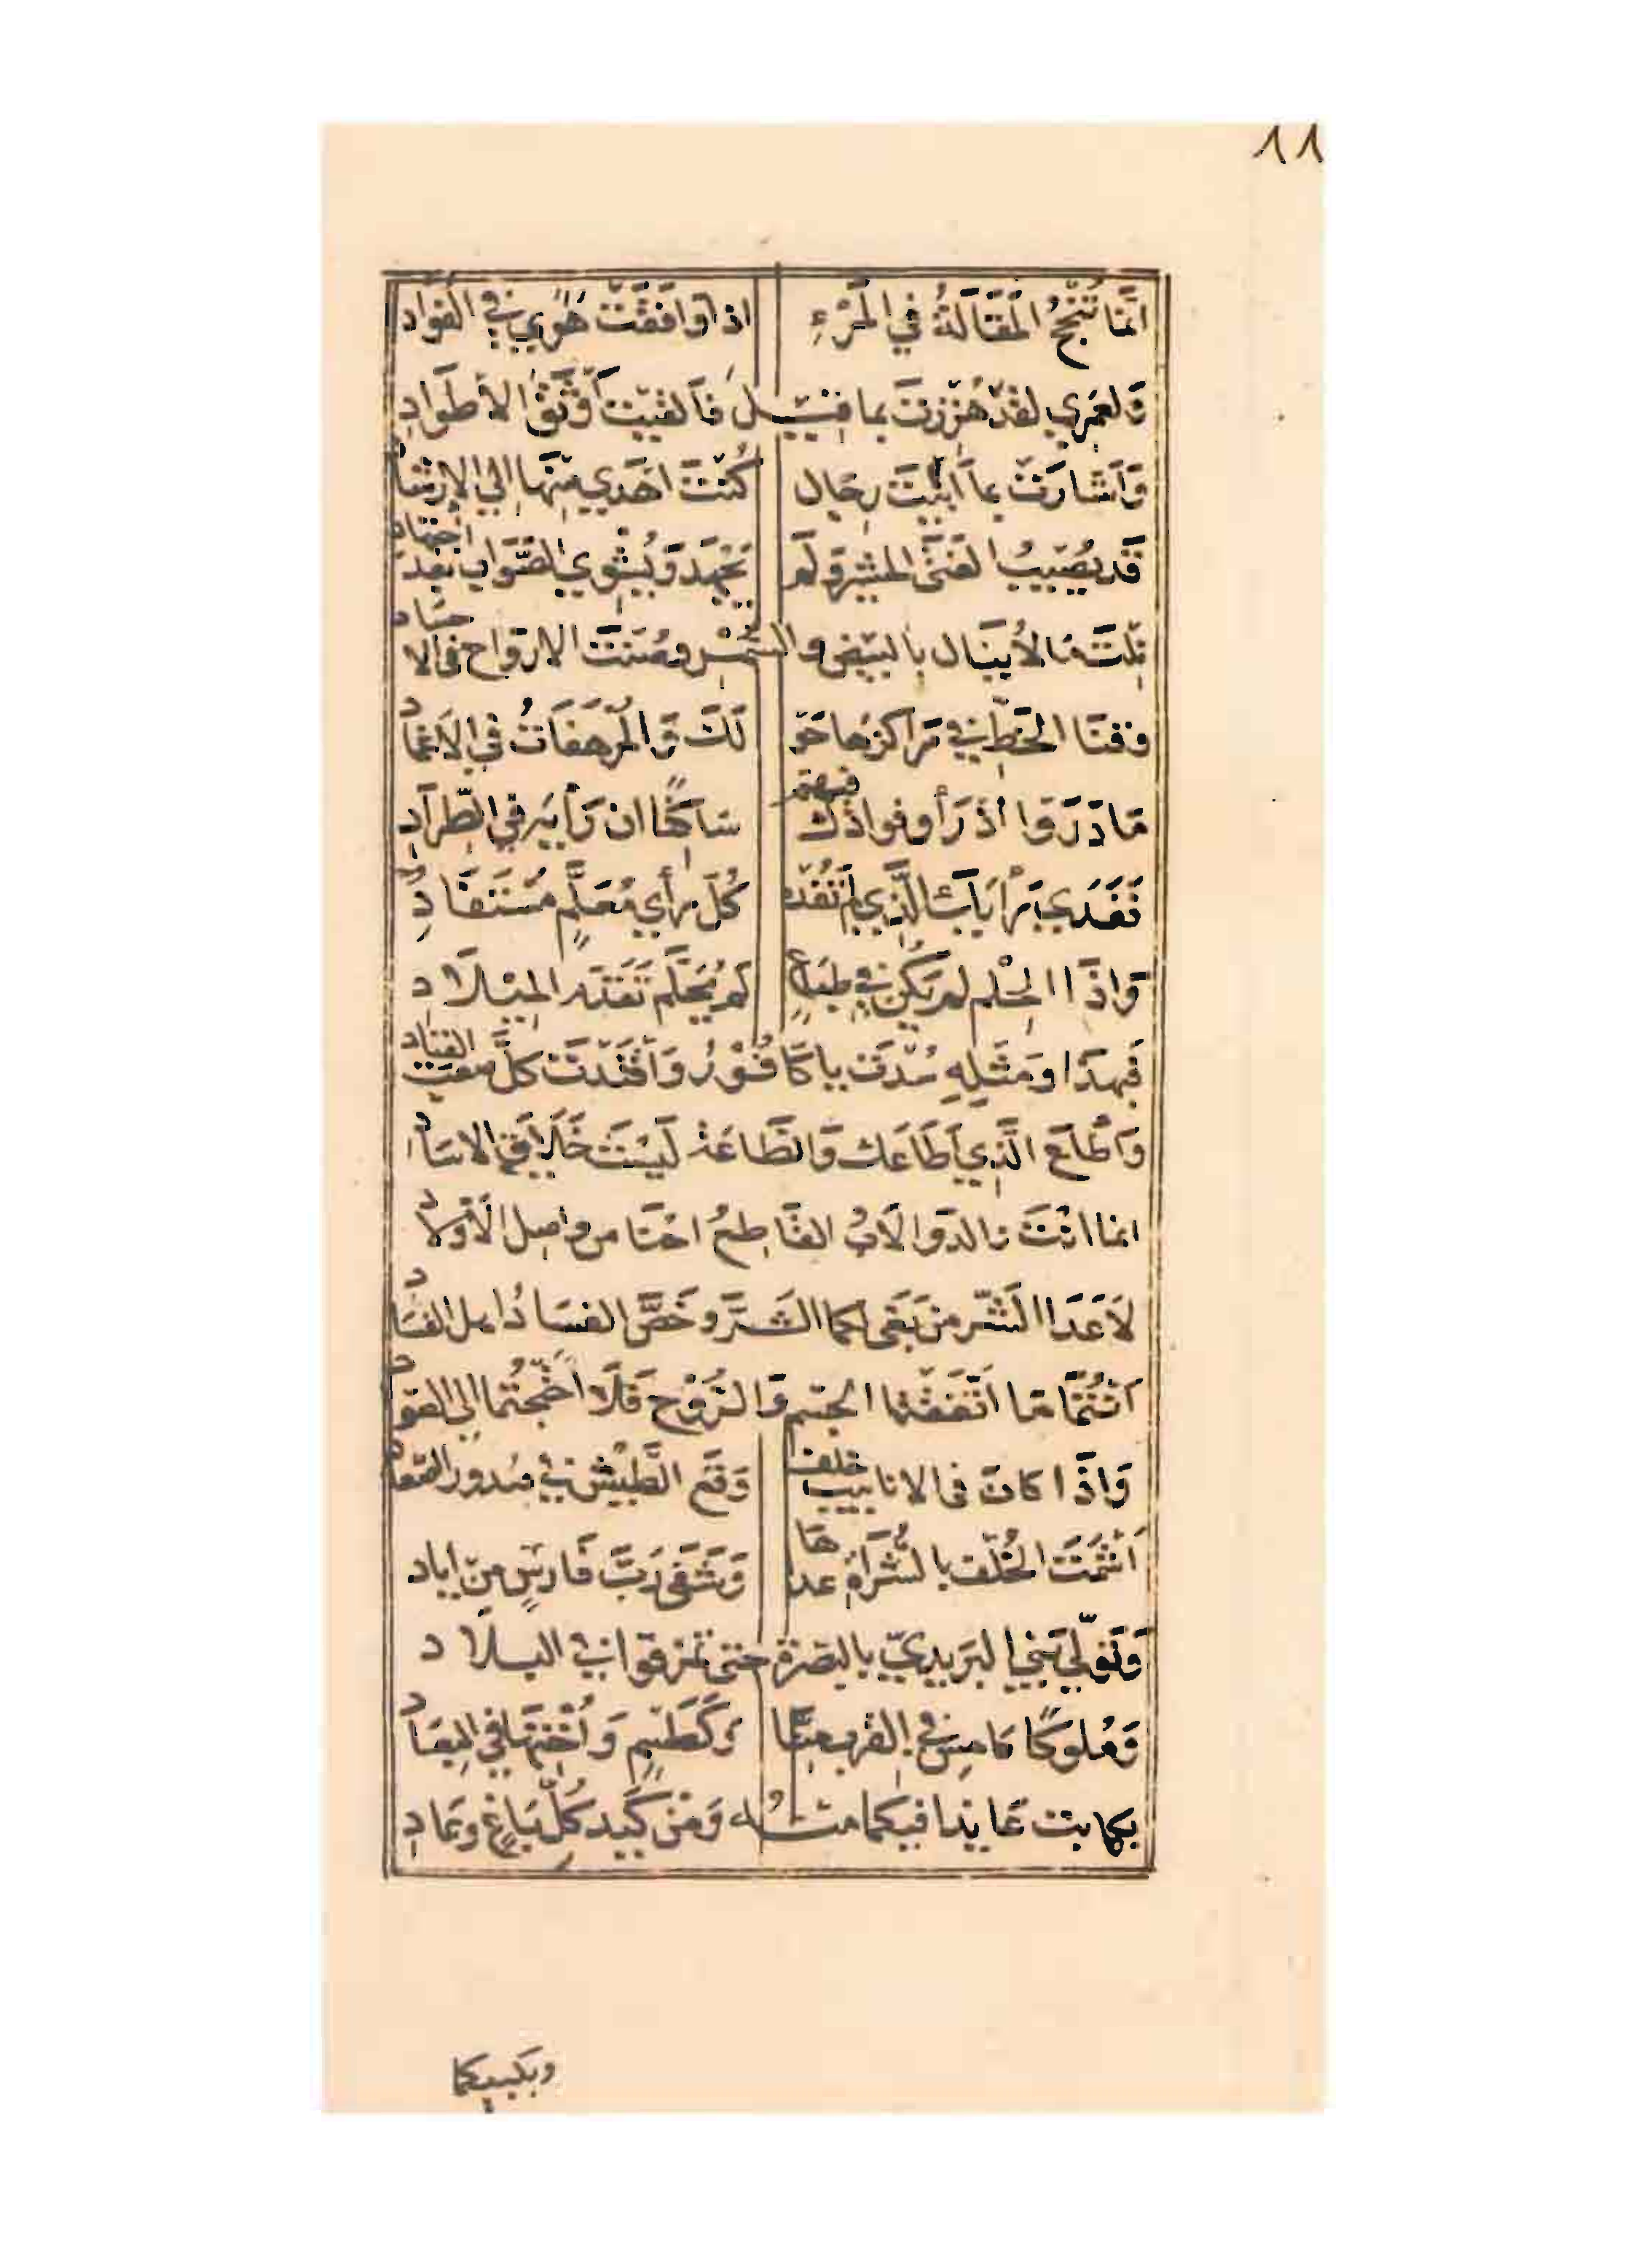 ٨٨
انَّمَا تُنْجِحُ الْمَقَالَةُ فِي الْمَرْءِ اذا وَافَقَتْ هَوًي فِي الفؤادِ
وَلعَمْرِي لقَدْ هُزِزْتَ بما قِيْـلَ فَألفيْتَ أوْثَقَ الأطْوَادِ
وَأشارَتْ بما أبَيْتَ رِجَال كُنْتَ اهْدَي مِنْهَا الي الارْشادِ
قَد يُصِيْبُ الفَتَى المشِيرُ وَلم يَجْهَدْ وَيُشْوِي الصَّوَابَ بَعْدَ اجتهاد
نِلْتَ مَا لاُ يُنَال بِالبيْضِ وَالسُّمْـرِ وصُنْتَ الارْوَاح فى الاجساد
وَقَنَا الخَطِّ فِي مَرَاكِزِهَا حَوْ لَكَ وَالْمُرْهَفَاتُ فِي الاَغْمادِ
مَا دَرَوْا اذ رَأَوْ فؤادَكَ فيهم سَاكِنًا ان رَأْيَهُ فِي الطِّرَادِ
فَفَدَي رَأْيَكَ الَّذِي لَمْ تُفَدْهُ كُلّ رَأْيٍ مُعَلَّمٍ مُسْتَفَادِ
وَاذَا الحِلْم لم يَكُنْ فِي طِبَاعٍ لَم يُحَلِّم تَقَدّمُ الميْلاَدِ
فَبِهذَا وَمِثْلِهِ سُدْتَ يا كَافُوْرُ وَاقْتَدْتَ كلَّ صَعْبِ القياد
وَأطاعَ الَّذِي أَطَاعَكَ وَالطَّاعَةُ لَيْسَتْ خَلَايِقَ الاسَادِ
انما انْتَ وَالد وَالاَبُ القَاطِعُ احْنَا من وَاصِلِ الأوْلاَدِ
لاَ عَدَا الشَّرّ من بَغَى لكما الشَّـرَّ وَخَصَّ الفسَادُ اهل الفسَادِ
انْتُمَا مَا اتّفَقْتُما الجسْم وَالرُّوْح فَلاَ احْتَجْتُمَا الي العوّادِ
وَاذَا كَانَ فى الانابيْب خلف وَقَع الطَّيْشُ فِي صُدورِ الصِّعادِ
اَشْمَتَ الخُلْفُ بالشُّرَاةِ عداهَا وَشَفَى رَبَّ فَارِسٍ مِن اياد
وَتَوَلِّي بَنِي البَرِيدِيّ بالبَصْرَةِ حتى تمزقوا فِي البـلادِ
وَمُلوكًا كَامِس فِي القرب منّا وَكَطَسْمٍ وَاُخْتِهَا فِي البِعَادِ
بِكما بِتّ عَايِدا فيكما منـهُ وَمِنْ كَيْدِ كُلِّ بَاغٍ وعَادِ
وبلبيكما